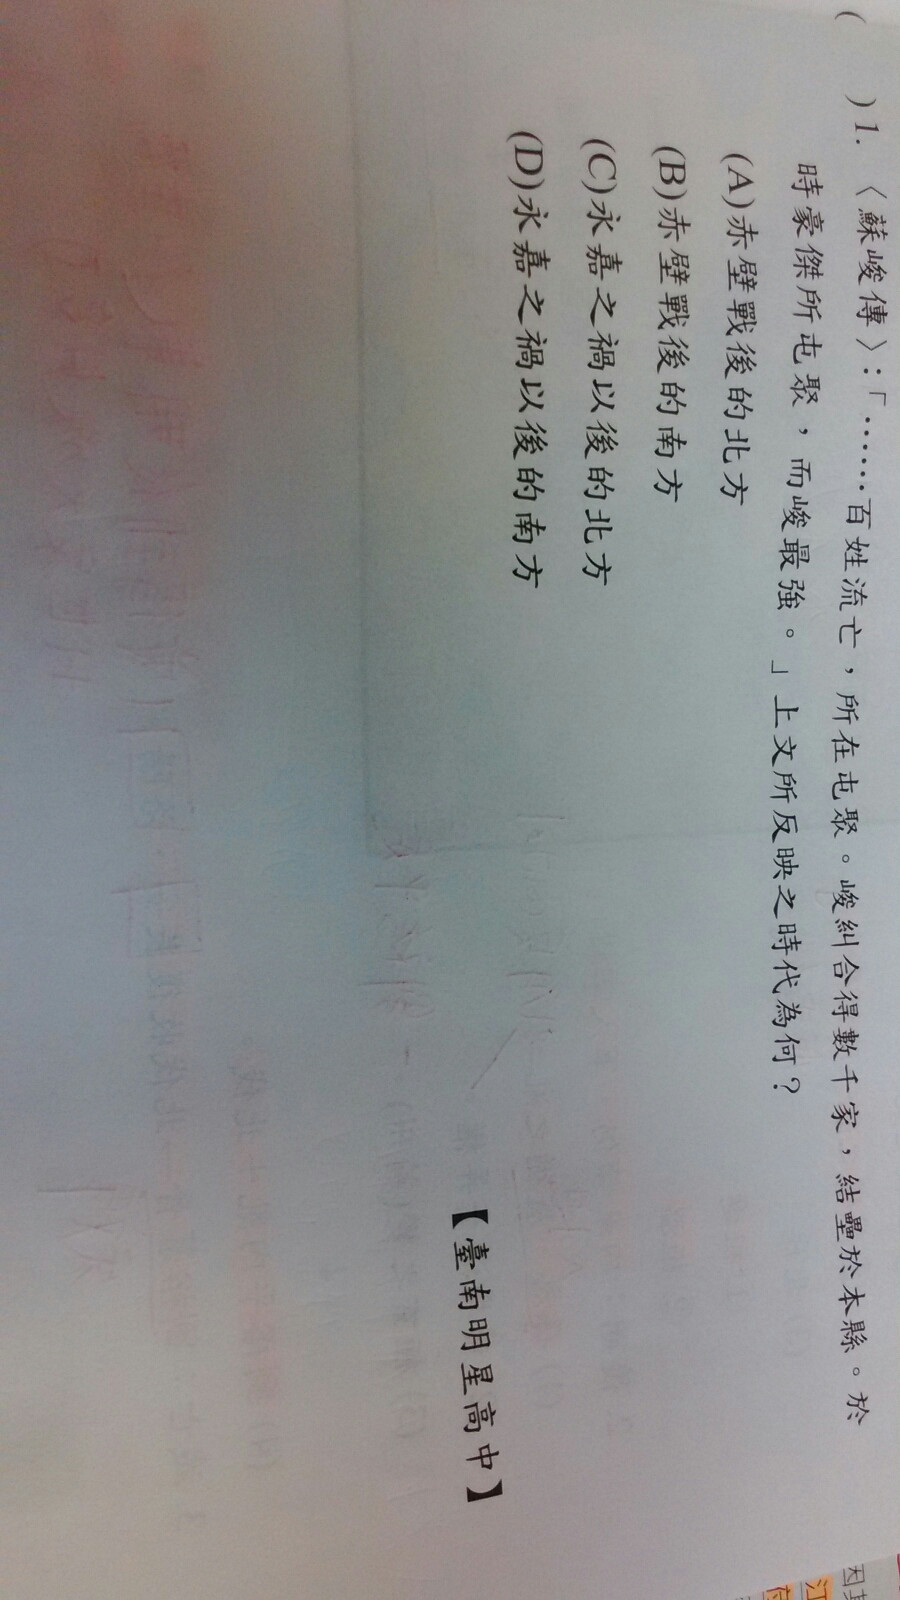 ( )1.〈蘇峻傳〉:「……百姓流亡，所在屯聚。峻糾合得數千家，結壘於本縣。於
時豪傑所屯聚，而峻最強。」上文所反映之時代為何？
(A)赤壁戰後的北方
(B)赤壁戰後的南方
(C)永嘉之禍以後的北方
(D)永嘉之禍以後的南方
【臺南明星高中】